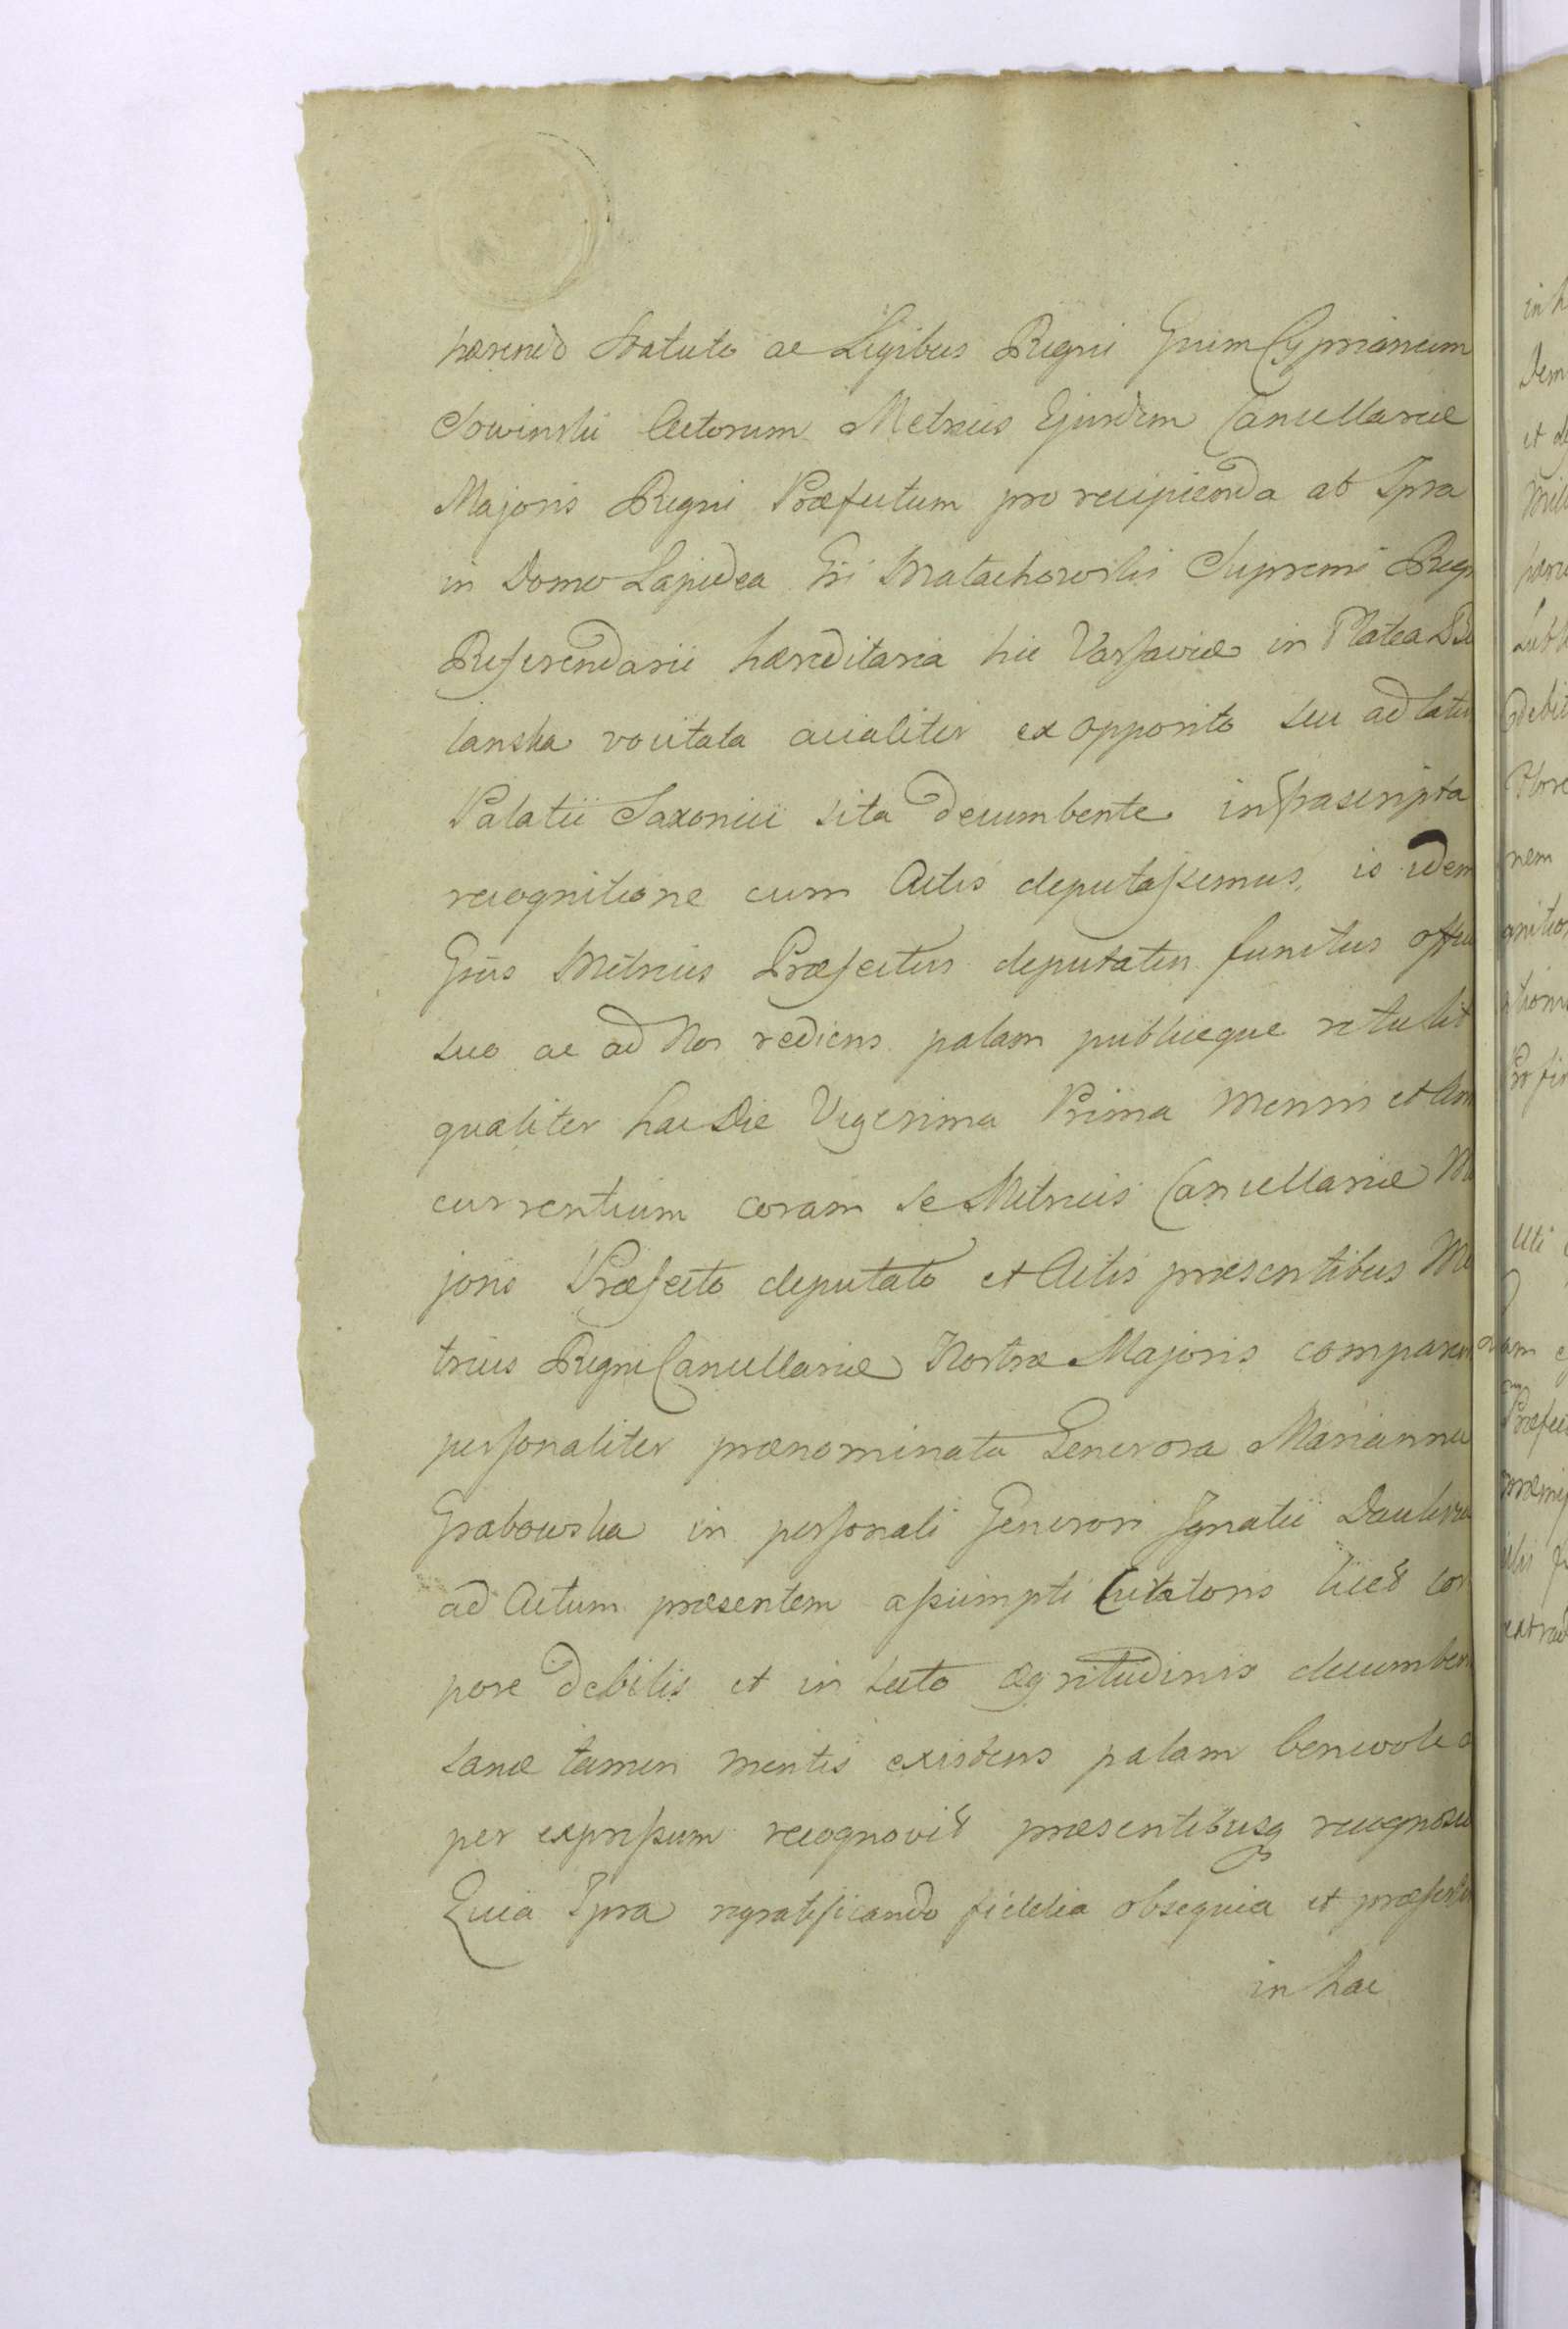 hærendo Statuto ac Legibus Regni Gnum Cyprianum
Sowinski Actorum Metrices Ejusdem Cancellariæ
Majoris Regni Præfectum pro recipienda ab Ipsa
in Domo Lapidea Gsi Małachowski Supremi Regn
Referendarii hæreditaria hic Varsaviæ in Platea
lanska vocitata acialiter ex opposito seu ad latu
Palatii Saxonici sita decumbente infrascripta
recognitione cum Actis deputassemus, is idem
Gsūs Metrices Præfectus deputatus functus offici
suo ac ad Nos rediens palam publiceque retulit
qualiter hac Die Vigesima Prima Mensis et Ann
currentium coram se Metrices Cancellariæ Ma
joris Præfecto deputato et Actis præsentibus Me
trices Regni Cancellariæ Nostræ Majoris comparen
personaliter prænominata Generosa Marianna
Grabowska in personali Generosi Ignatii
ad Actum præsentem assumpti Curatoris licet cor
pore debilis et in lecto ægritudinis decumben
sanæ tamen mentis existens palam benevole a
per expressum recognovit præsentibusq recognosci
Quia Ipsa regratificando fidelia obsequia et præsert
in hac
in h
Dem
et
debit
nem
gnitio
ptionis
Uti
am
Præfec
extrad